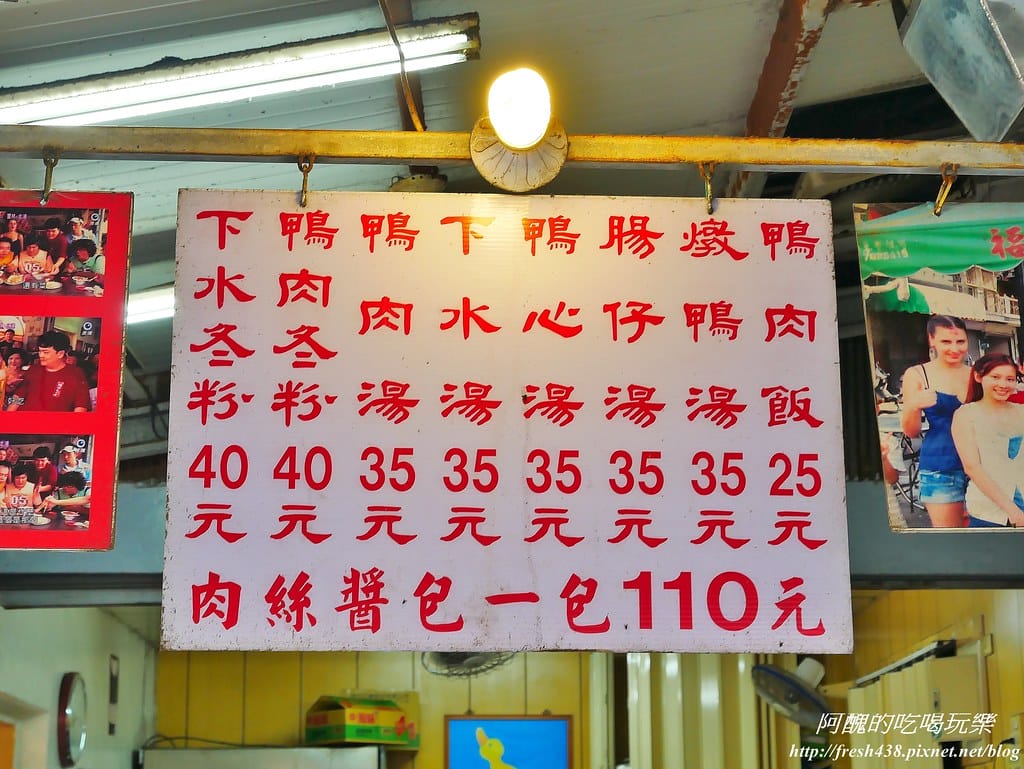 鴨肉飯25元
燉鴨湯35元
腸仔湯35元
鴨心湯35元
下水湯35元
鴨肉湯35元
鴨肉冬粉40元
下水冬粉40元
肉絲醬包一包110元
福
阿醜的吃喝玩樂
http://fresh438.pixnet.net/blog